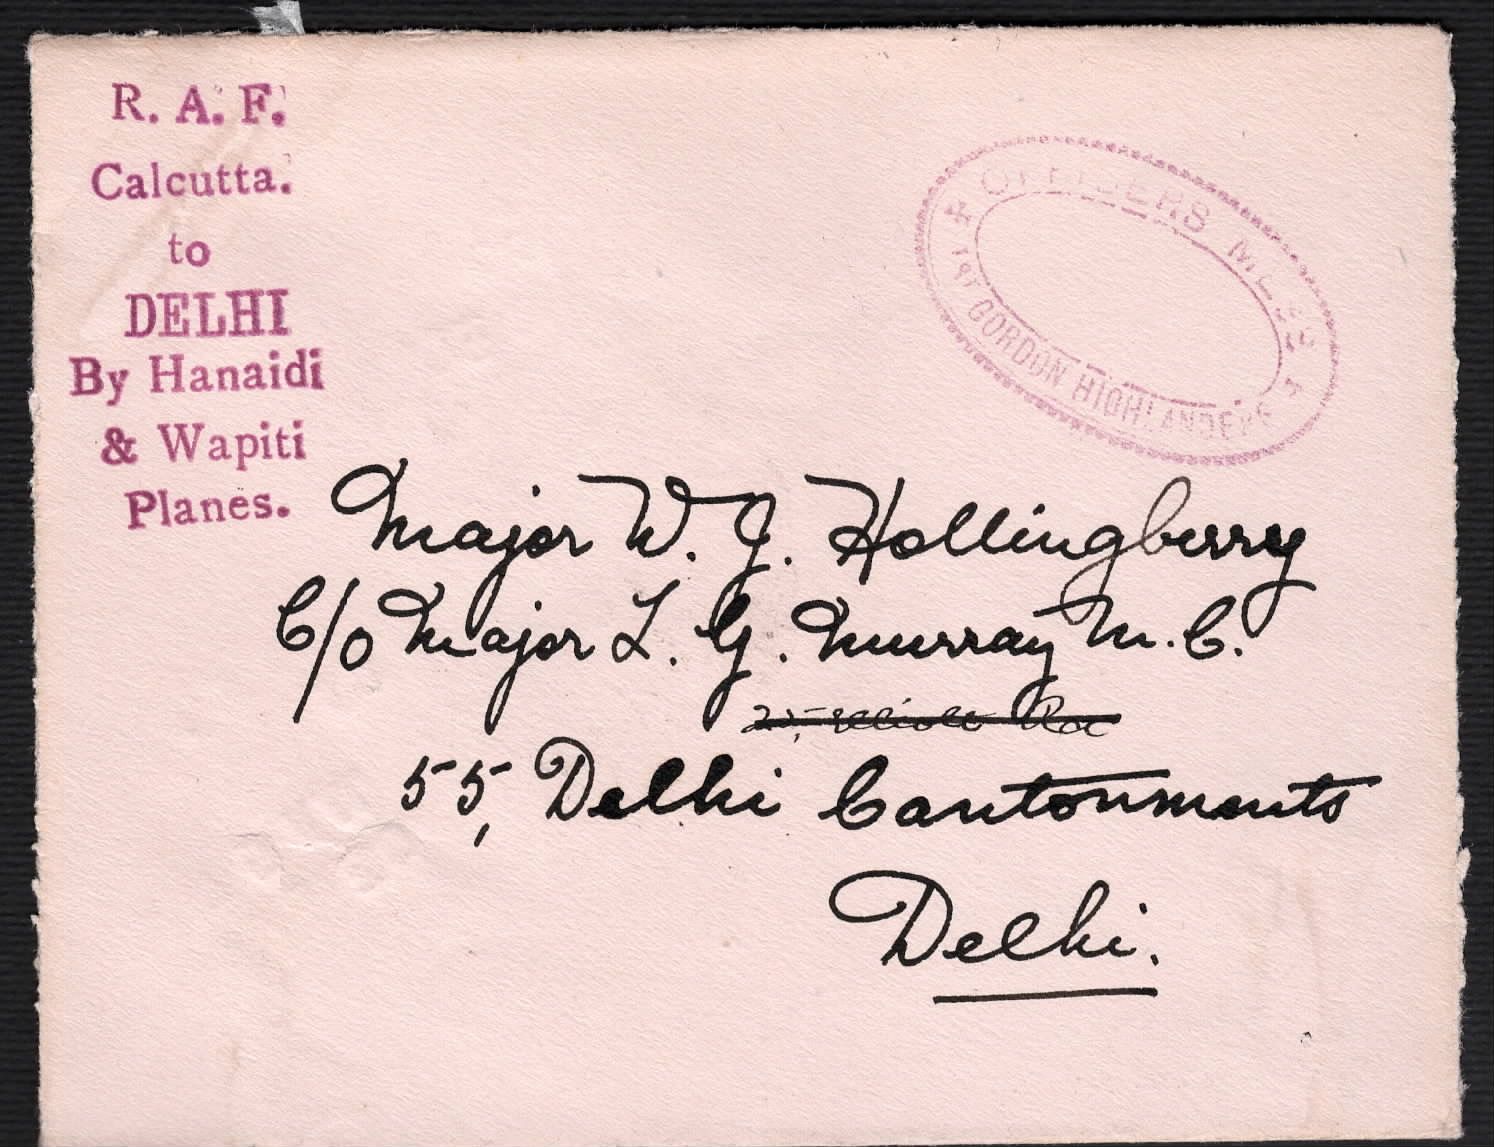 R. A. F.
Calcutta.
to
DELHI
By Hanaidi
& Wapiti
Planes.
OFFICERS MESS
1ST GORDON HIGHLANDERS
Major W. J. Hollingberry
C/o Major L. G. Murray M. C.
25,
55, Delhi Cantonments
Delhi.